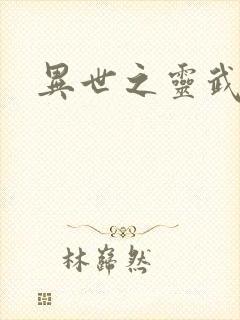 異世之靈武
林巋然